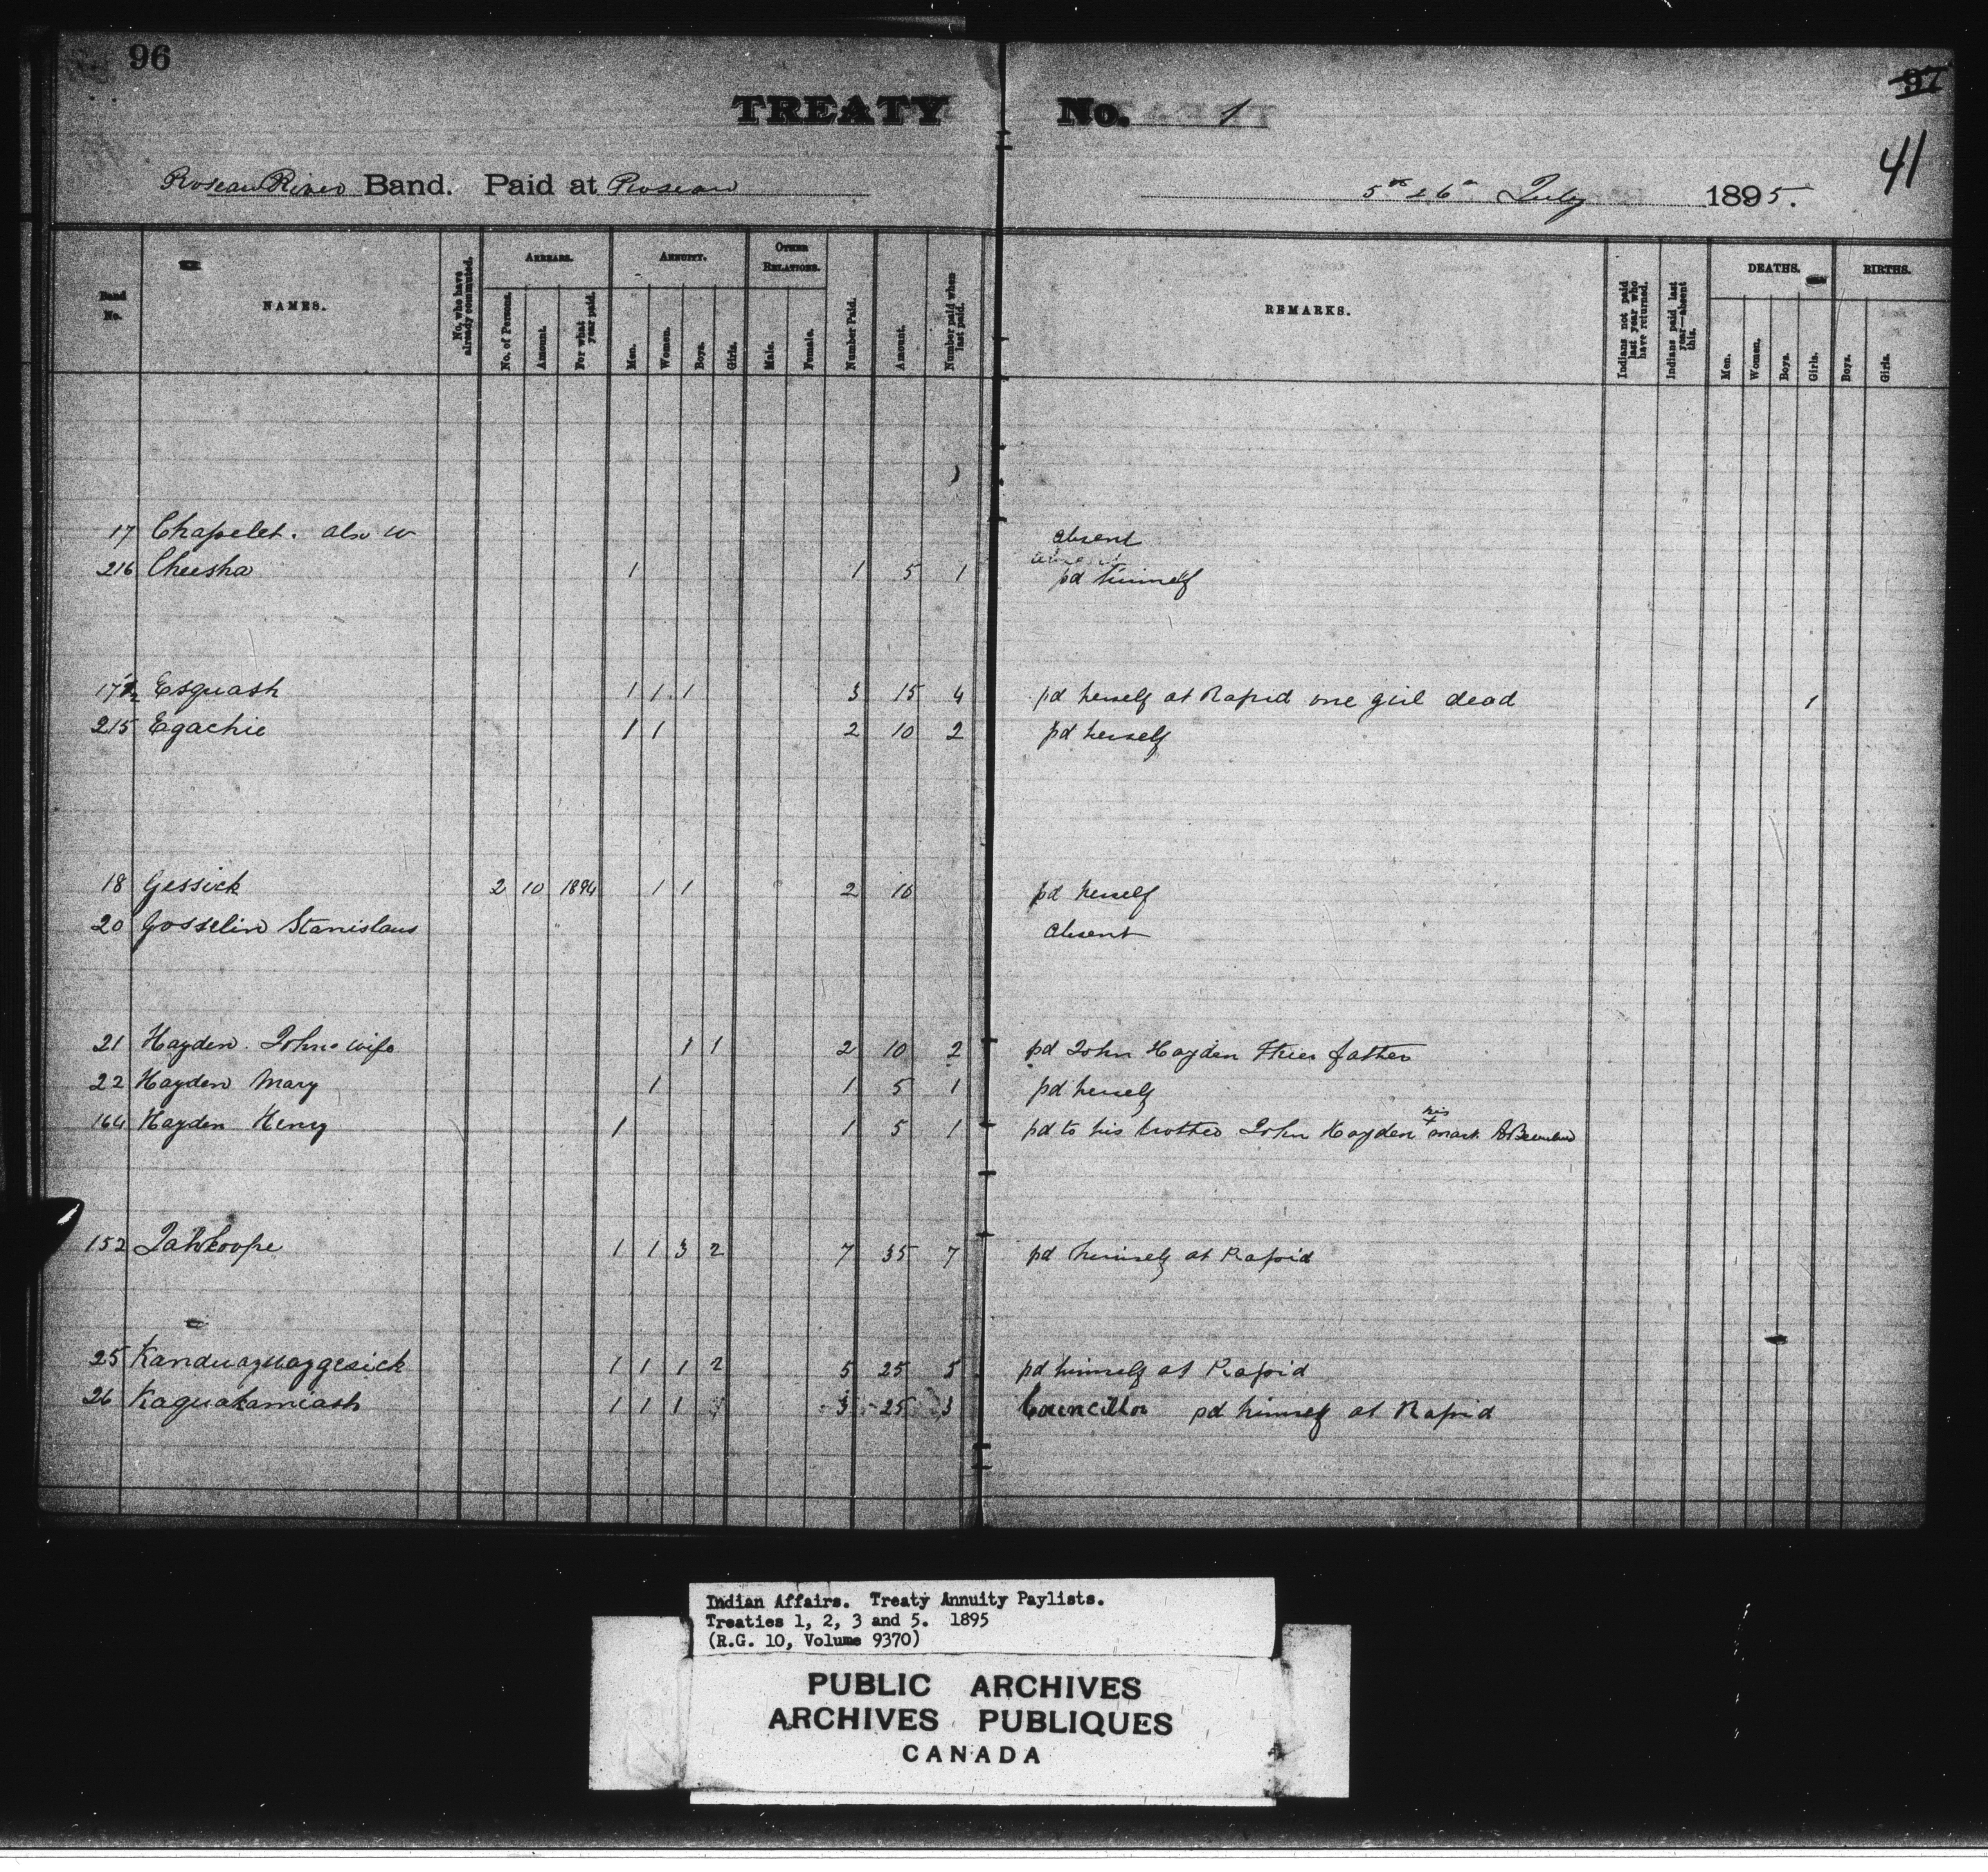 96
97
41
TREATY No. 1
Roseau River Band. Paid at Roseau 5th & 6th July 1895.
Band No.
NAMES.
No. who have already commuted.
ARREARS.
No. of Persons.
Amount.
For what year paid.
ANNUITY.
Men.
Women.
Boys.
Girls.
OTHER RELATIONS.
Male.
Female.
Number Paid.
Amount.
Number paid when last paid.
REMARKS.
Indians not paid last year who have returned.
Indians paid last year—absent this.
DEATHS.
Men.
Women.
Boys.
Girls.
BIRTHS.
Boys.
Girls.
17 Chapelet. also w absent
216 Cheesha 1 1 5 1 absent pd himself
17½ Esquash 1 1 1 3 15 4 pd herself at Rapid one girl dead 1
215 Egachie 1 1 2 10 2 pd herself
18 Gessick 2 10 1894 1 1 2 10 pd herself
20 Gosselin Stanislaus absent
21 Hayden. John's wife 1 1 2 10 2 pd John Hayden their father
22 Hayden Mary 1 1 5 1 pd herself
164 Hayden Henry 1 1 5 1 pd to his brother John Hayden his x mark
152 Jahkoope 1 1 3 2 7 35 7 pd himself at Rapid
25 Kanduayuaygesick 1 1 1 2 5 25 5 pd himself at Rapid
26 Kaguakamiash 1 1 1 3 25 3 Councillor pd himself at Rapid
Indian Affairs. Treaty Annuity Paylists.
Treaties 1, 2, 3 and 5. 1895
(R.G. 10, Volume 9370)
PUBLIC ARCHIVES
ARCHIVES PUBLIQUES
CANADA